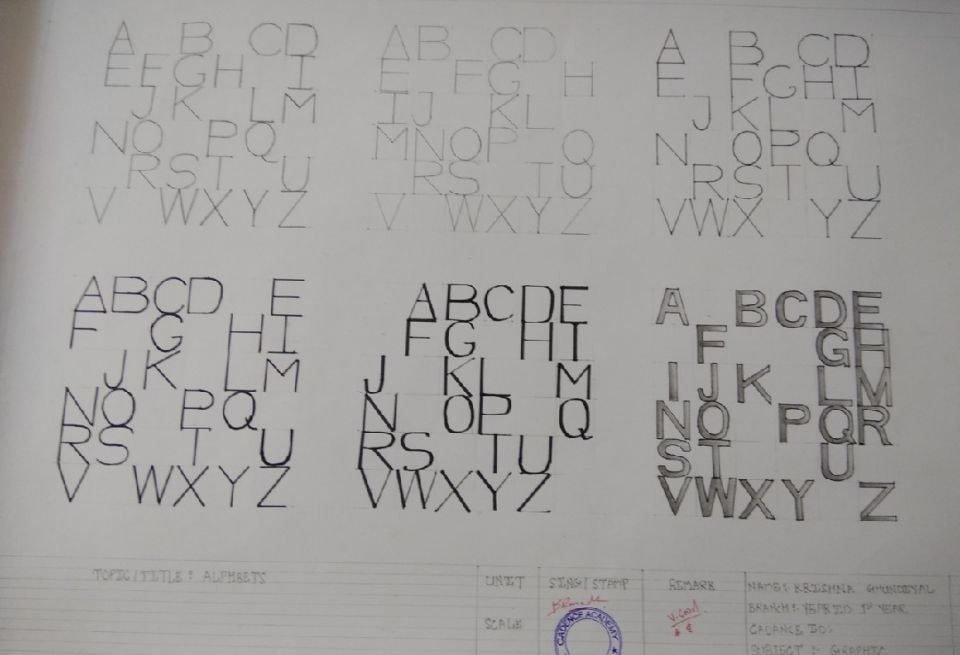 A B CD
EFGH I
JK LM
NO PQ
RST U
V WXYZ
AB CD
E FG H
IJ KL
MNOP Q
RS TU
V WXYZ
A B CD
E FGHI
J KL M
N OPQ
RST U
VWX YZ
ABCD E
F G HI
JK LM
NO PQ
RS T U
V WXYZ
ABCDE
FG HI
J KL M
N OP Q
RS TU
VWXYZ
A BCDE
F GH
IJK LM
NO PQR
ST U
VWXY Z
TOPIC/TITLE : ALPHBETS
UNIT
SCALE
SING/STAMP
CADENCE ACADEMY
REMARK
V.Good
NAME: KRISHNA
BRANCH: 1ST YEAR
CADANCE ID:
SUBJECT : GRAPHIC